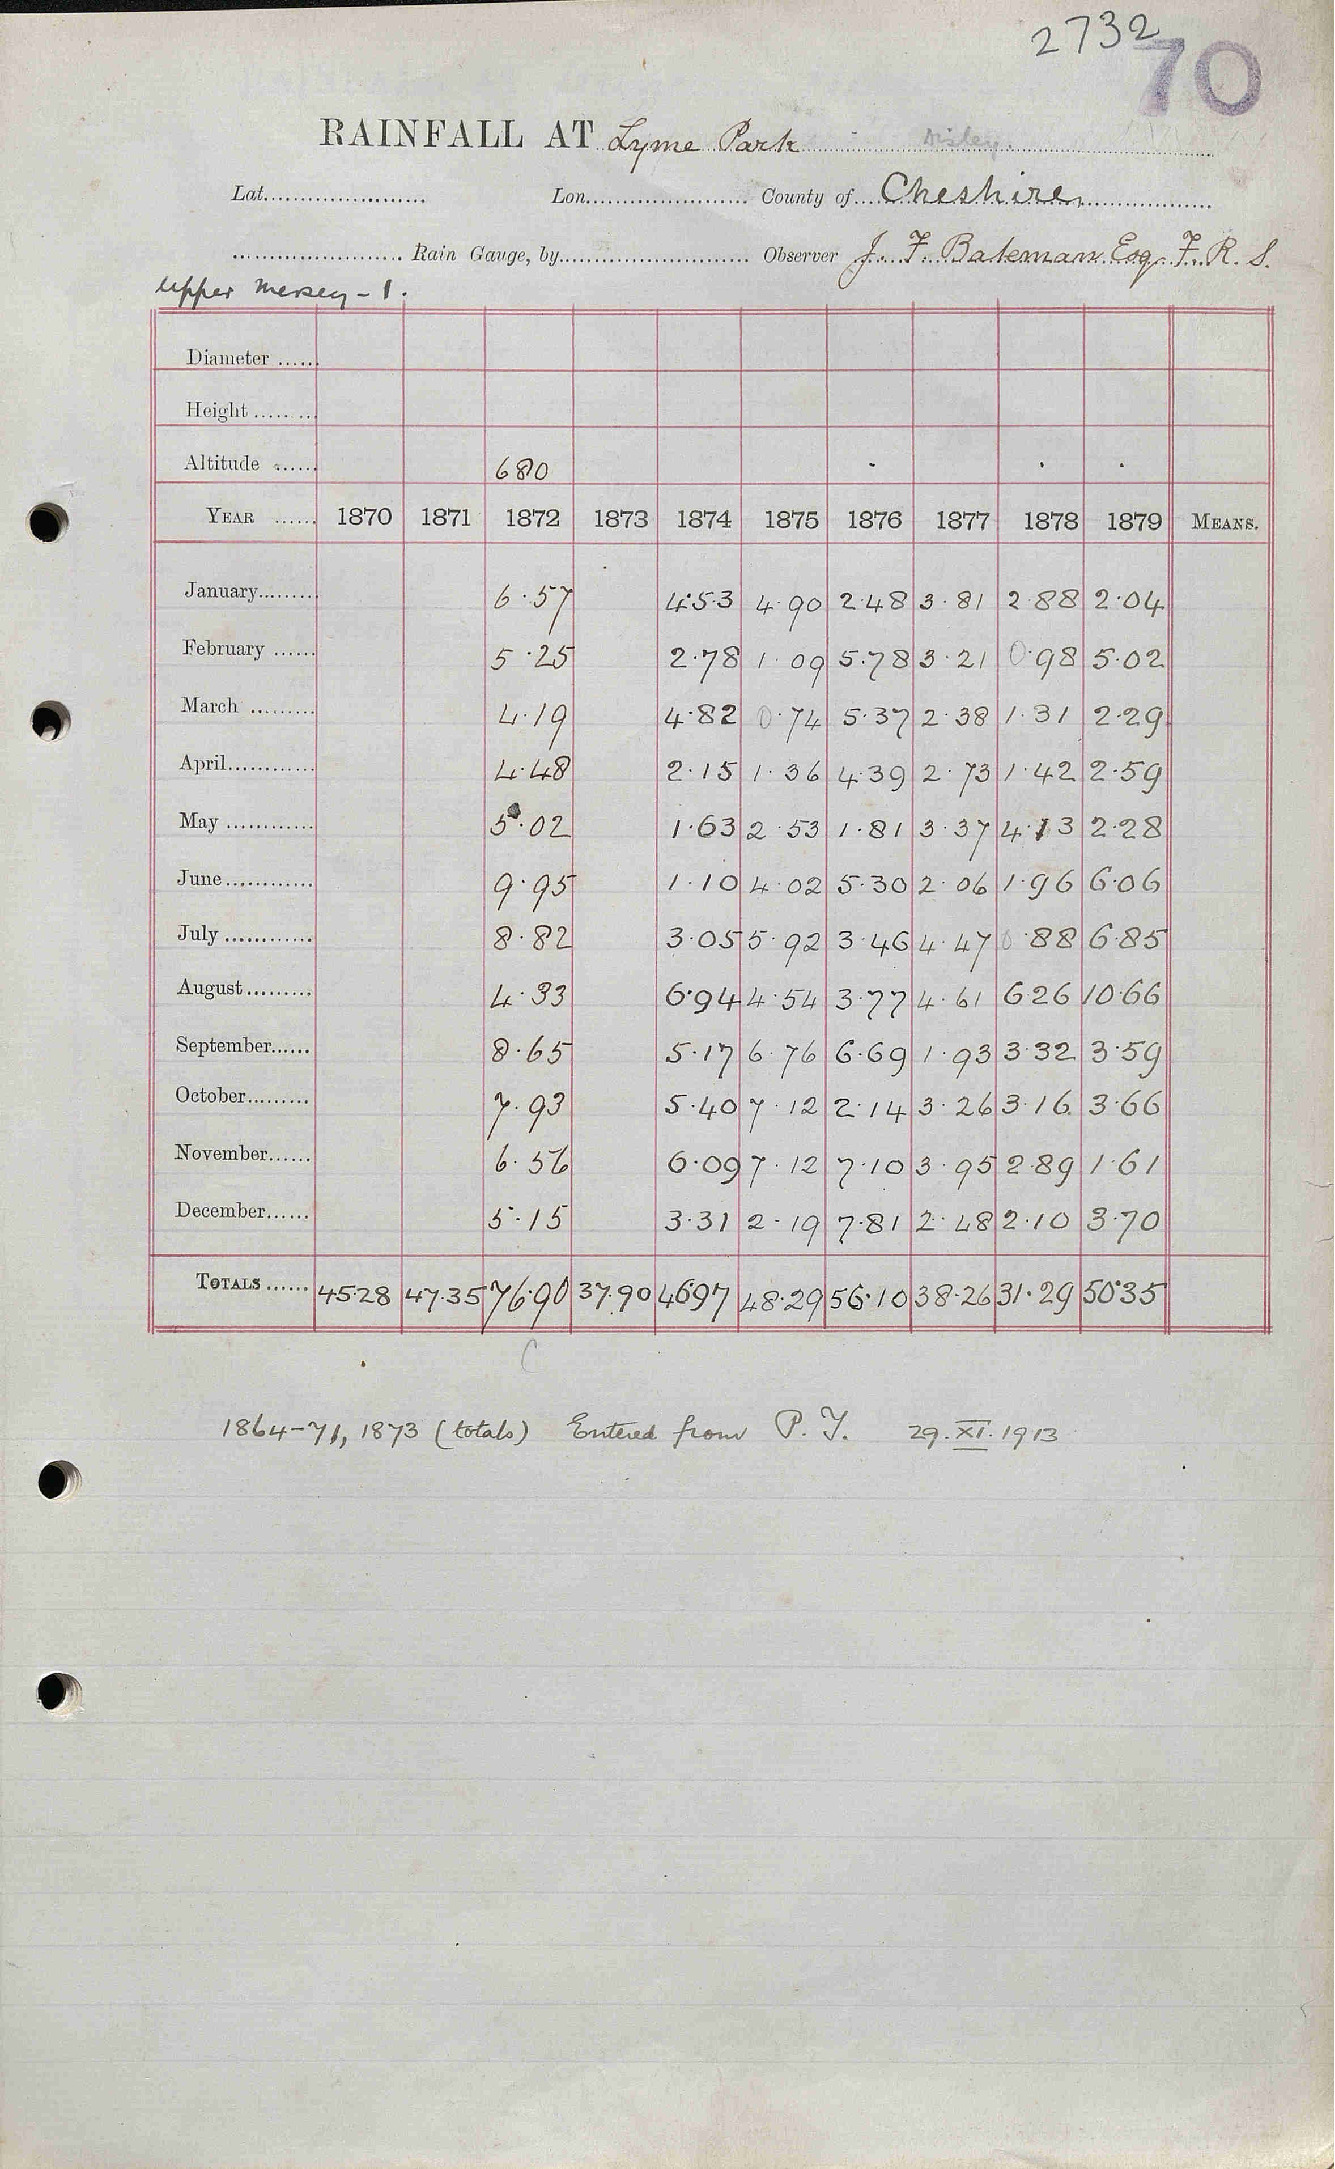 2732
70
RAINFALL AT Lyme Park Disley.
Lat. Lon. County of Cheshire
Rain Gauge, by Observer J. F. Bateman Esq. F. R. S.
Upper Mersey - 1.
Diameter
Height
Altitude 680
YEAR 1870 1871 1872 1873 1874 1875 1876 1877 1878 1879 MEANS.
January 6.57 4.53 4.90 2.48 3.81 2.88 2.04
February 5.25 2.78 1.09 5.78 3.21 0.98 5.02
March 4.19 4.82 0.74 5.37 2.38 1.31 2.29
April 4.48 2.15 1.36 4.39 2.73 1.42 2.59
May 5.02 1.63 2.53 1.81 3.37 4.13 2.28
June 9.95 1.10 4.02 5.30 2.06 1.96 6.06
July 8.82 3.05 5.92 3.46 4.47 0.88 6.85
August 4.33 6.94 4.54 3.77 4.61 6.26 10.66
September 8.65 5.17 6.76 6.69 1.93 3.32 3.59
October 7.93 5.40 7.12 2.14 3.26 3.16 3.66
November 6.56 6.09 7.12 7.10 3.95 2.89 1.61
December 5.15 3.31 2.19 7.81 2.48 2.10 3.70
TOTALS 45.28 47.35 76.90 37.90 46.97 48.29 56.10 38.26 31.29 50.35
C
1864-71, 1873 (totals) Entered from P. T. 29.XI.1913